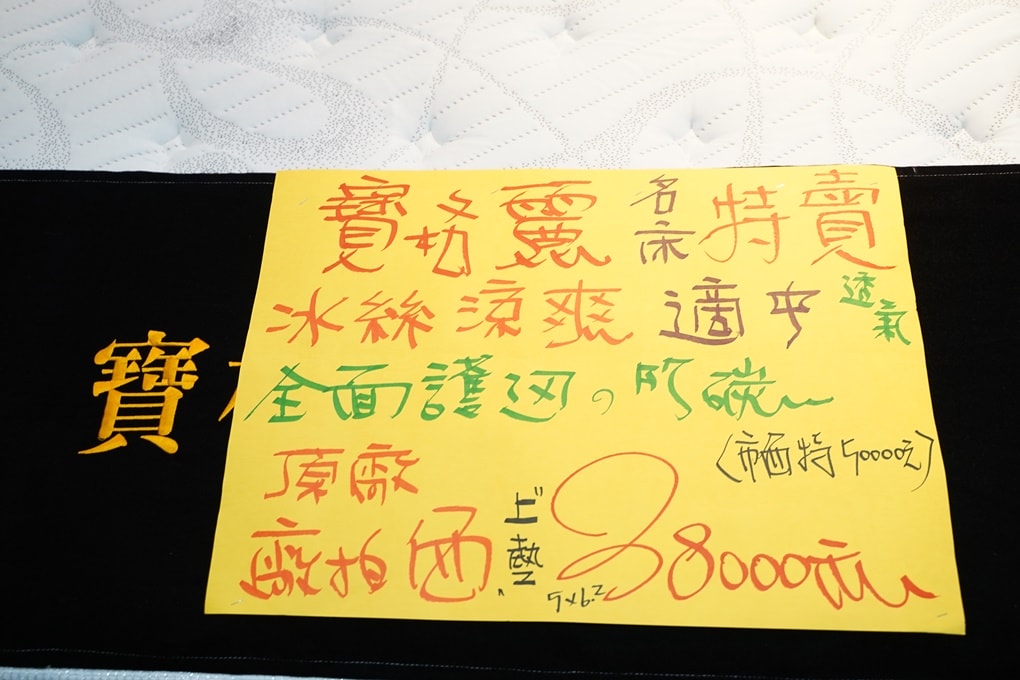 寶
寶格麗名床特賣
冰絲涼爽 適中 透氣
全面護边の防碳
(市面特50000元)
頂廠
廠拍 上墊 5x6.2 28000元